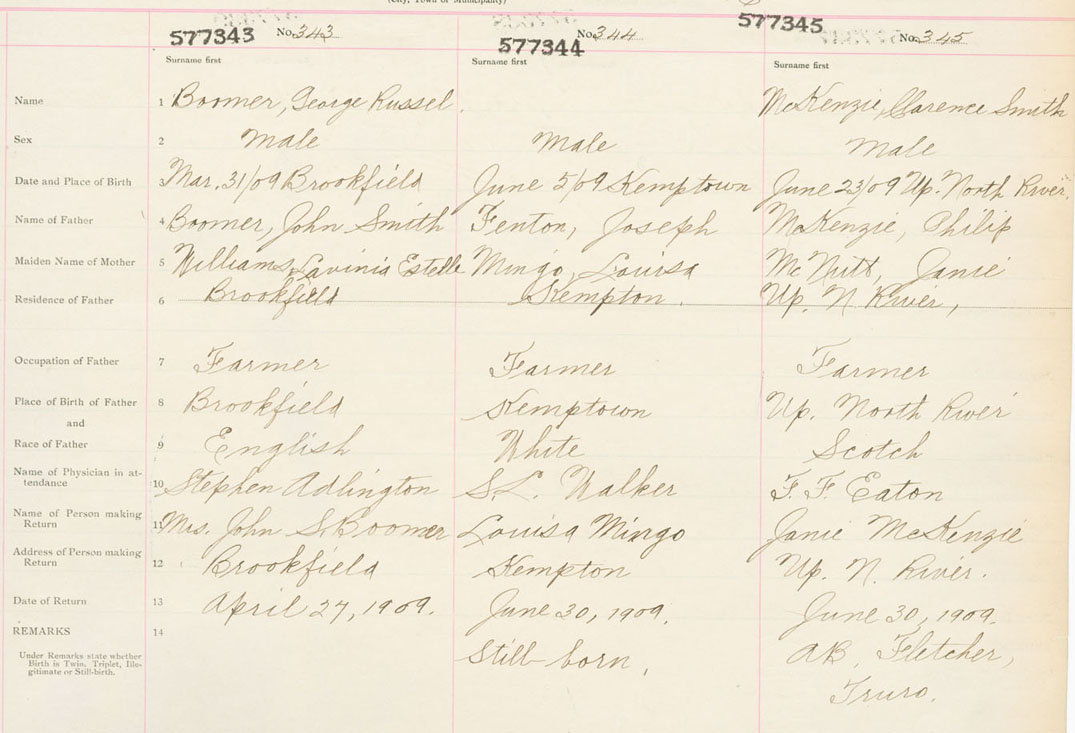 (City, Town or Municipality)
577343 No. 343 577344 No. 344 577345 No. 345
Surname first Surname first Surname first
Name 1 Boomer, George Russel. McKenzie, Clarence Smith
Sex 2 Male Male Male
Date and Place of Birth 3 Mar. 31/09 Brookfield June 5/09 Kemptown June 23/09 Up. North River.
Name of Father 4 Boomer, John Smith Fenton, Joseph McKenzie, Philip
Maiden Name of Mother 5 Williams, Lavinia Estelle Mingo, Louisa McNutt, Janie
Residence of Father 6 Brookfield Kempton. Up. N River,
Occupation of Father 7 Farmer Farmer Farmer
Place of Birth of Father 8 Brookfield Kemptown Up. North River
and
Race of Father 9 English White Scotch
Name of Physician in at-
tendance 10 Stephen Adlington S.L. Walker F. F. Eaton
Name of Person making
Return 11 Mrs. John S. Boomer Louisa Mingo Janie McKenzie
Address of Person making
Return 12 Brookfield Kempton Up. N. River.
Date of Return 13 April 27, 1909. June 30, 1909. June 30, 1909.
REMARKS 14 Still born, AB. Fletcher,
Under Remarks state whether
Birth is Twin, Triplet, Ille-
gitimate or Still-birth.
Truro.